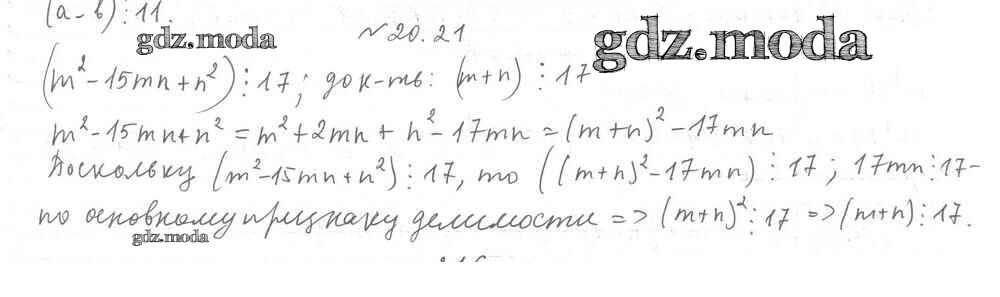 (a-b)⋮11.
gdz.moda
№20.21
gdz.moda
(m²-15mn+n²)⋮17; док-ть: (m+n)⋮17
m²-15mn+n² = m²+2mn+n²-17mn = (m+n)²-17mn
Поскольку (m²-15mn+n²)⋮17, то ((m+n)²-17mn)⋮17; 17mn⋮17-
по основному признаку делимости => (m+n)²⋮17 => (m+n)⋮17.
gdz.moda